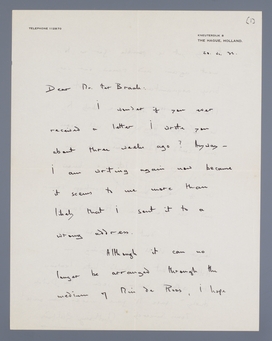 (1)
TELEPHONE
THE HAGUE, HOLLAND.
Dear Mr. Ter Braak:
I wonder if you ever
received a letter I wrote you
about three weeks ago? Anyway –
I am writing again now because
it seems to me more than
likely that I sent it to a
wrong address.
Although it can no
longer be arranged through the
medium of Miss de Roos, I hope